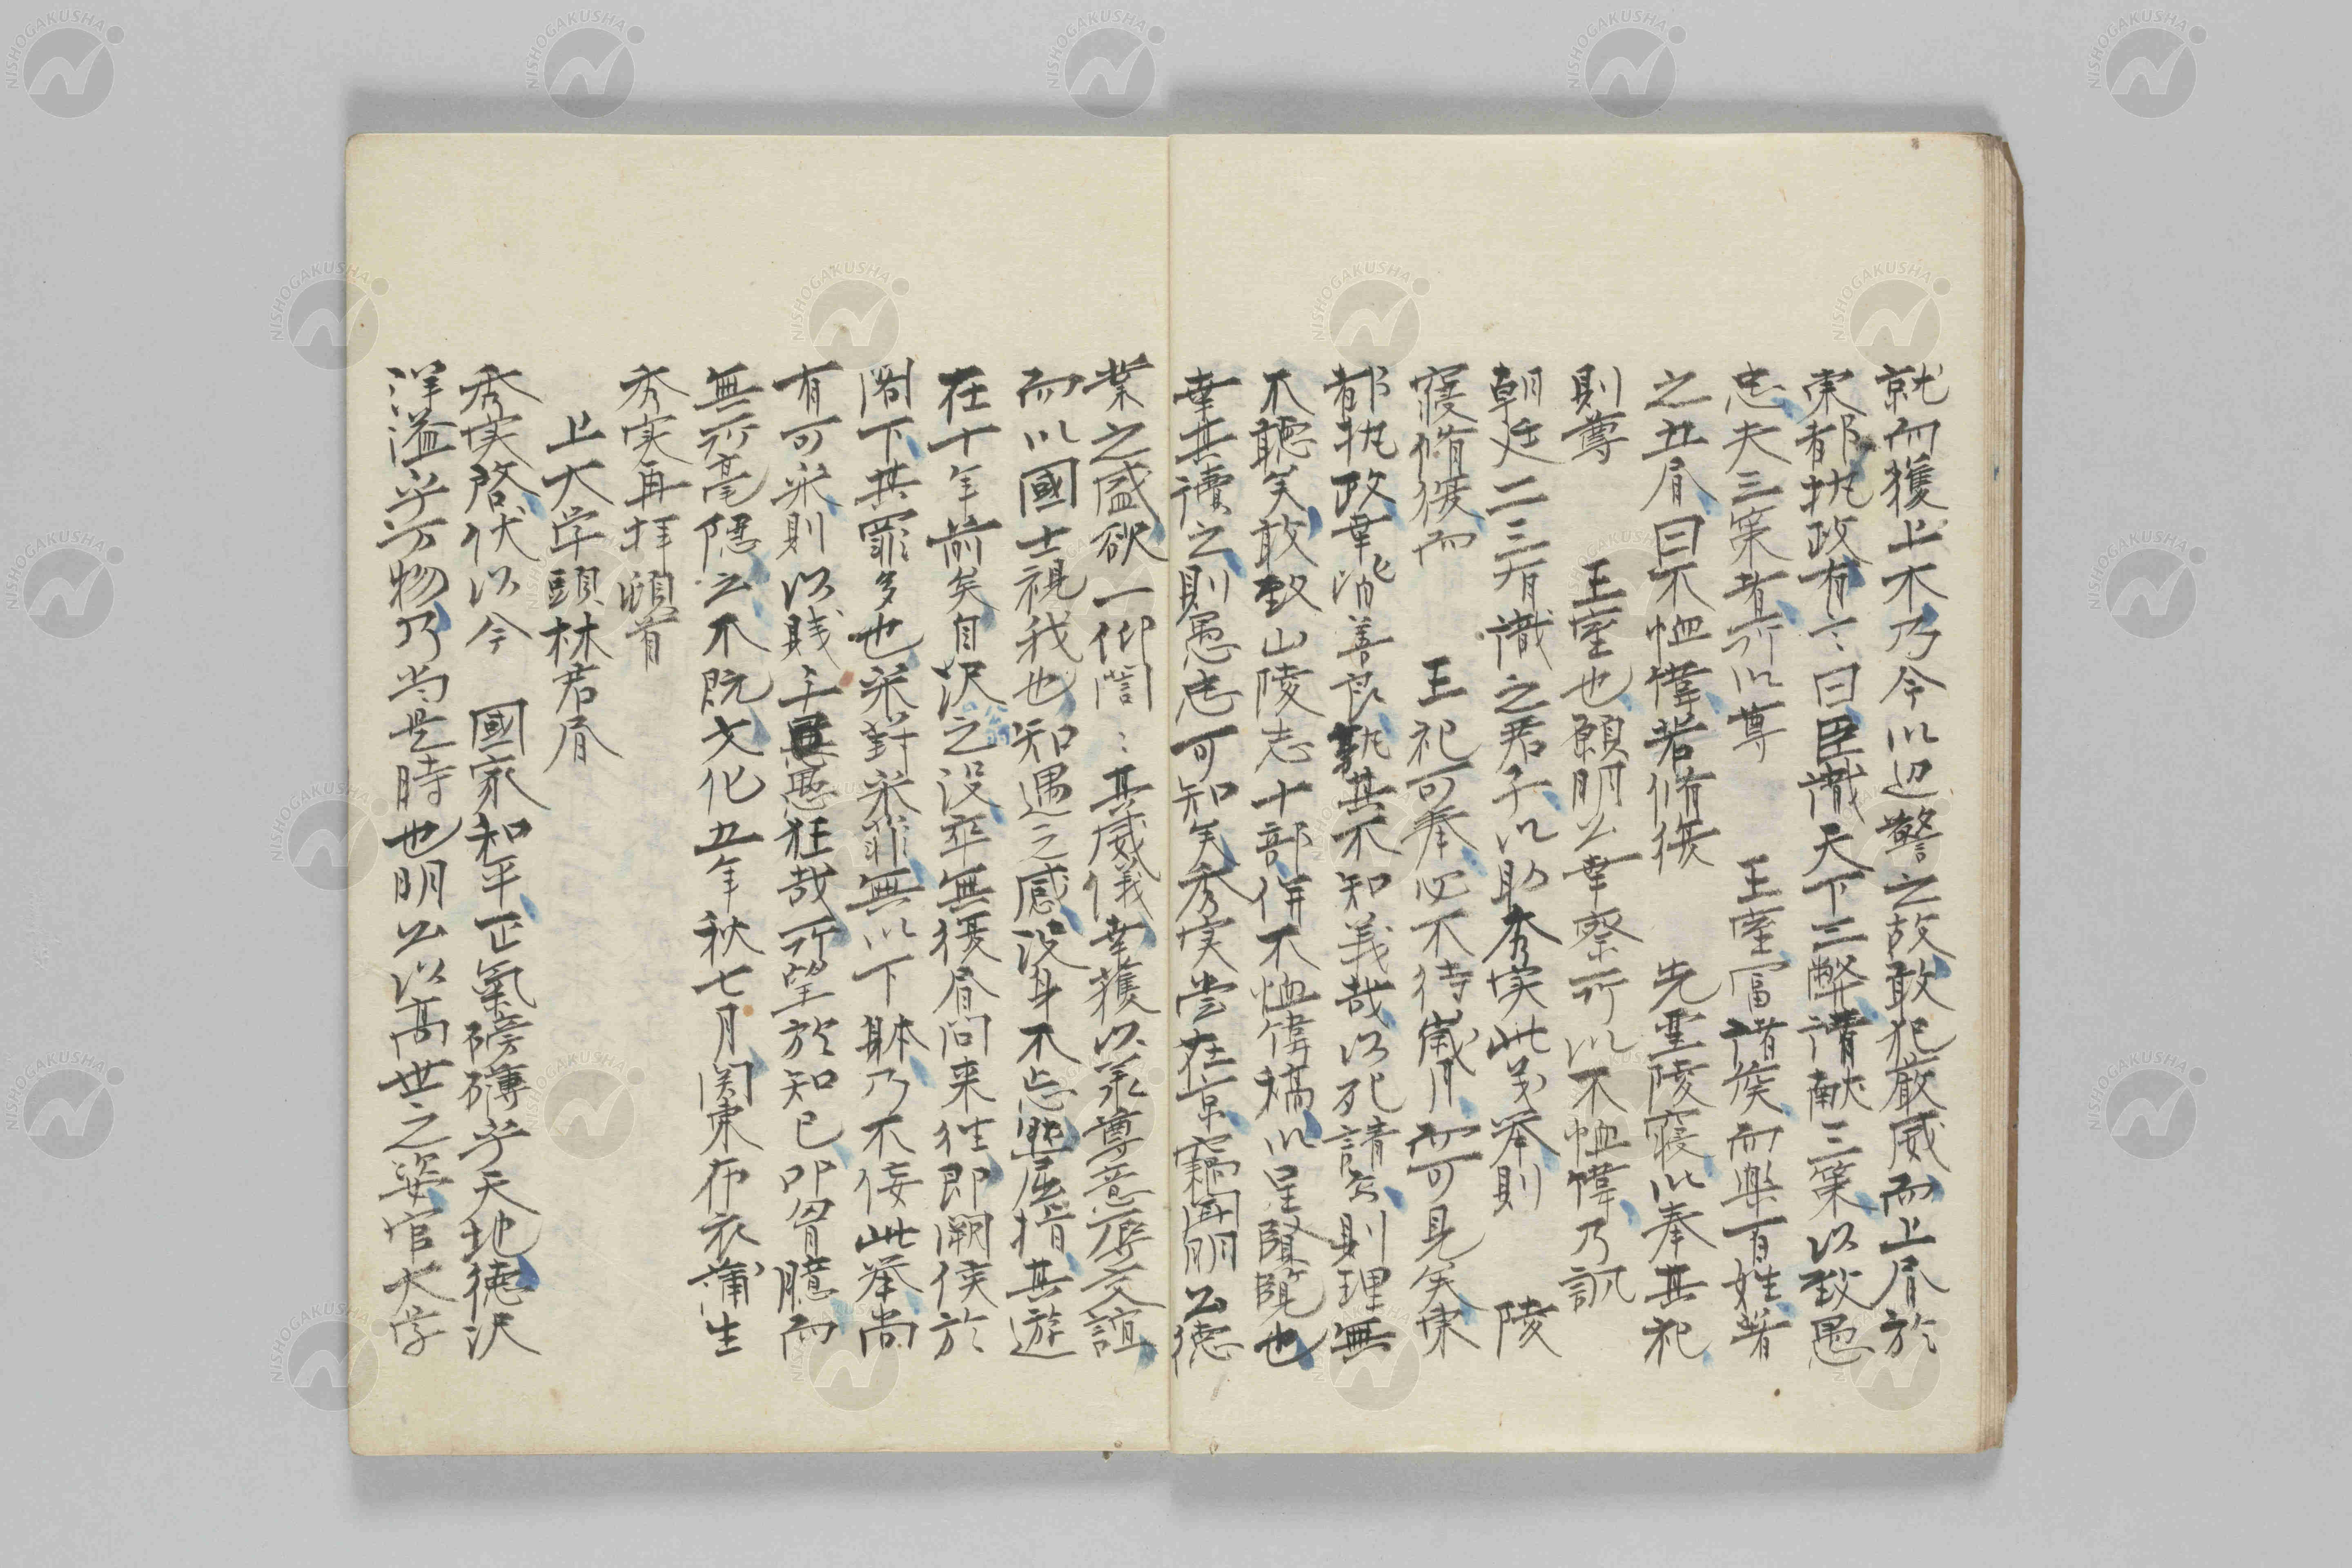 就而獲上木乃今以辺警之故敢犯厳威而上眉於
東都執政有言曰臣識天下三弊請献三策以致愚
忠夫三策者所以尊　王室富諸侯而楽百姓者
之五眉曰不恤偉若脩復　先王陵寝以奉其祀
則尊　王室也願明公幸察所以不恤偉乃訊
朝廷二三有識之君子以助秀実此義挙則　陵
寝脩復而　王祀可奉必不待歳月而可見矣東
都執政幸能納善良孰其不知義哉以死請公則理無
不聴矣敢致山陵志十部併不恤偉稿以呈賢覧也
幸其読之則愚忠可知矣秀実嘗在京窃聞明公徳
業之盛欲一仰誾〻其威儀幸獲以承尊意辱交誼
而以國士視我也知遇之感没身不忘無屈指其遊
在十年前矣自沢之没卒無復眉問来往即闕侯於
閤下其罪多也采葑采菲無以下躰乃不佞此挙尚
有可采則以賎士愚狂哉所望於知己叩胷臆而
無所毫隠之不既文化五年秋七月関東布衣蒲生
秀実再拝頓首
上大学頭林君眉
秀実啓伏以今　國家和平正氣磅礴乎天地徳沢
洋溢乎万物乃当是時也明公以高世之姿官大学
NISHOGAKUSHA